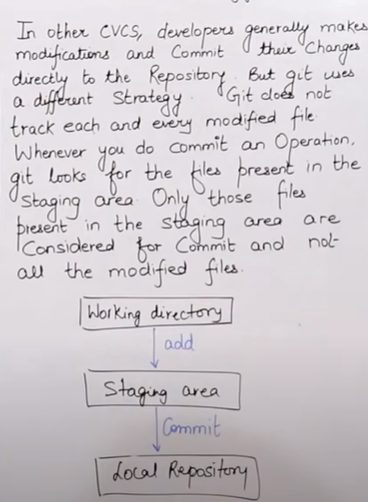 In other CVCS, developers generally makes
modifications and Commit their Changes
directly to the Repository. But git uses
a different Strategy. Git does not
track each and every modified file.
Whenever you do commit an Operation,
git looks for the files present in the
Staging area. Only those files
present in the staging area are
Considered for Commit and not
all the modified files.
Working directory
add
Staging area
Commit
Local Repository